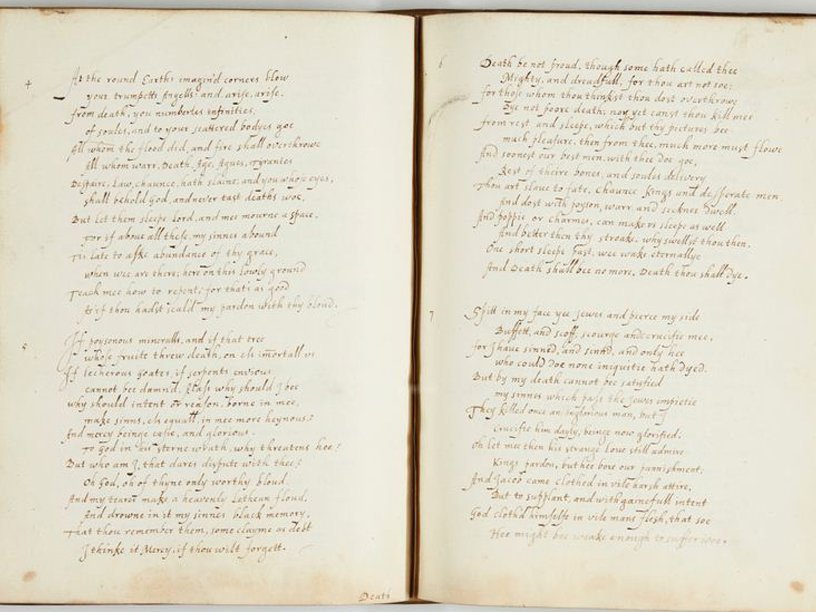 4
At the round Earths imagin'd corners blow
your trumpetts Angells and arise, arise.
from death, you numberles infinities,
of soules, and to your scattered bodyes goe
All whom the flood did, and fire shall overthrowe
All whom warr, Death, Age, Agues, Tyranies
Despaire, Law, chaunce, hath slaine, and you whose eyes,
shall behold God, and never tast deaths woe.
But let them sleepe Lord, and mee mourne a space,
For if above all these, my sinnes abound
Tis late to aske abundance of thy grace,
when wee are there; here on this lowly ground
Teach mee how to repent; for thats as good
As if thou hadst seald my pardon with thy bloud.
5
If poysonous mineralls, and if that tree
whose fruite threw death, on els imortall us
If lecherous goates, if serpents envious
cannot bee damn'd, Alass why should I bee
why should intent or reason, borne in mee,
make sinns, els equall, in mee more heynous?
And mercy beinge easie, and glorious.
To God in his sterne wrath, why threatens hee?
But who am I, that dares dispute with thee?
Oh God, oh of thyne only worthy bloud,
And my teares make a heavenly Lethean floud,
And drowne in it my sinnes black memory.
That thou remember them, some clayme as debt
I thinke it Mercy, if thou wilt forgett.
Death
6
Death be not proud, though some hath called thee
Mighty, and dreadfull, for thou art not soe;
for those whom thou thinkst thou dost overthrowe
Dye not poore death, nor yet canst thou kill mee
from rest, and sleepe, which but thy pictures bee
much pleasure, then from thee, much more must flowe
And soonest our best men, with thee doe goe,
Rest of theire bones, and soules delivery
Thou art slave to fate, Chaunce kings and desperate men
And dost with poyson, warr, and sicknes dwell.
And poppie or charmes, can make us sleepe as well
And better then thy stroake. why swellst thou then.
One short sleepe past, wee wake eternallye
And Death shall bee no more, Death thou shalt dye.
7
Spitt in my face yee Jewes and pierce my side
Buffett, and scoff, scourge and crucifie mee,
for I have sinned, and sinn'd, and only hee
who could doe none iniquitie hath dyed.
But by my death cannot bee satisfied
my sinnes which pass the Jewes impietie
They killed once an inglorious man, but I
Crucifie him dayly, beinge now glorified;
Oh let mee then his strange love still admire
Kings pardon, but hee bore our punnishment;
And Jacob came clothed in vile harsh attire,
But to supplant, and with gainefull intent
God cloth'd himselfe in vile mans flesh, that soe
Hee might bee weake enough to suffer woe.